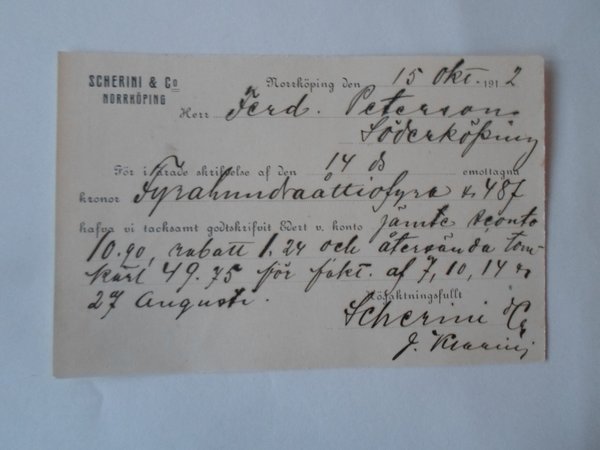 SCHERINI & Co
NORRKÖPING
Norrköping den 15 Okt. 1912
Herr Ferd. Peterson
Söderköping
För i ärade skrifvelse af den 14 ds emottagna
kronor Fyrahundraåttiofyra
hafva vi tacksamt godtskrifvit Edert v. konto jämte sconto
10.90, rabatt 1.24 och återsända tom-
kärl 49.75 för fakt. af 7, 10, 14 &
27 Augusti.
Högaktningsfullt
Scherini & Co
J.